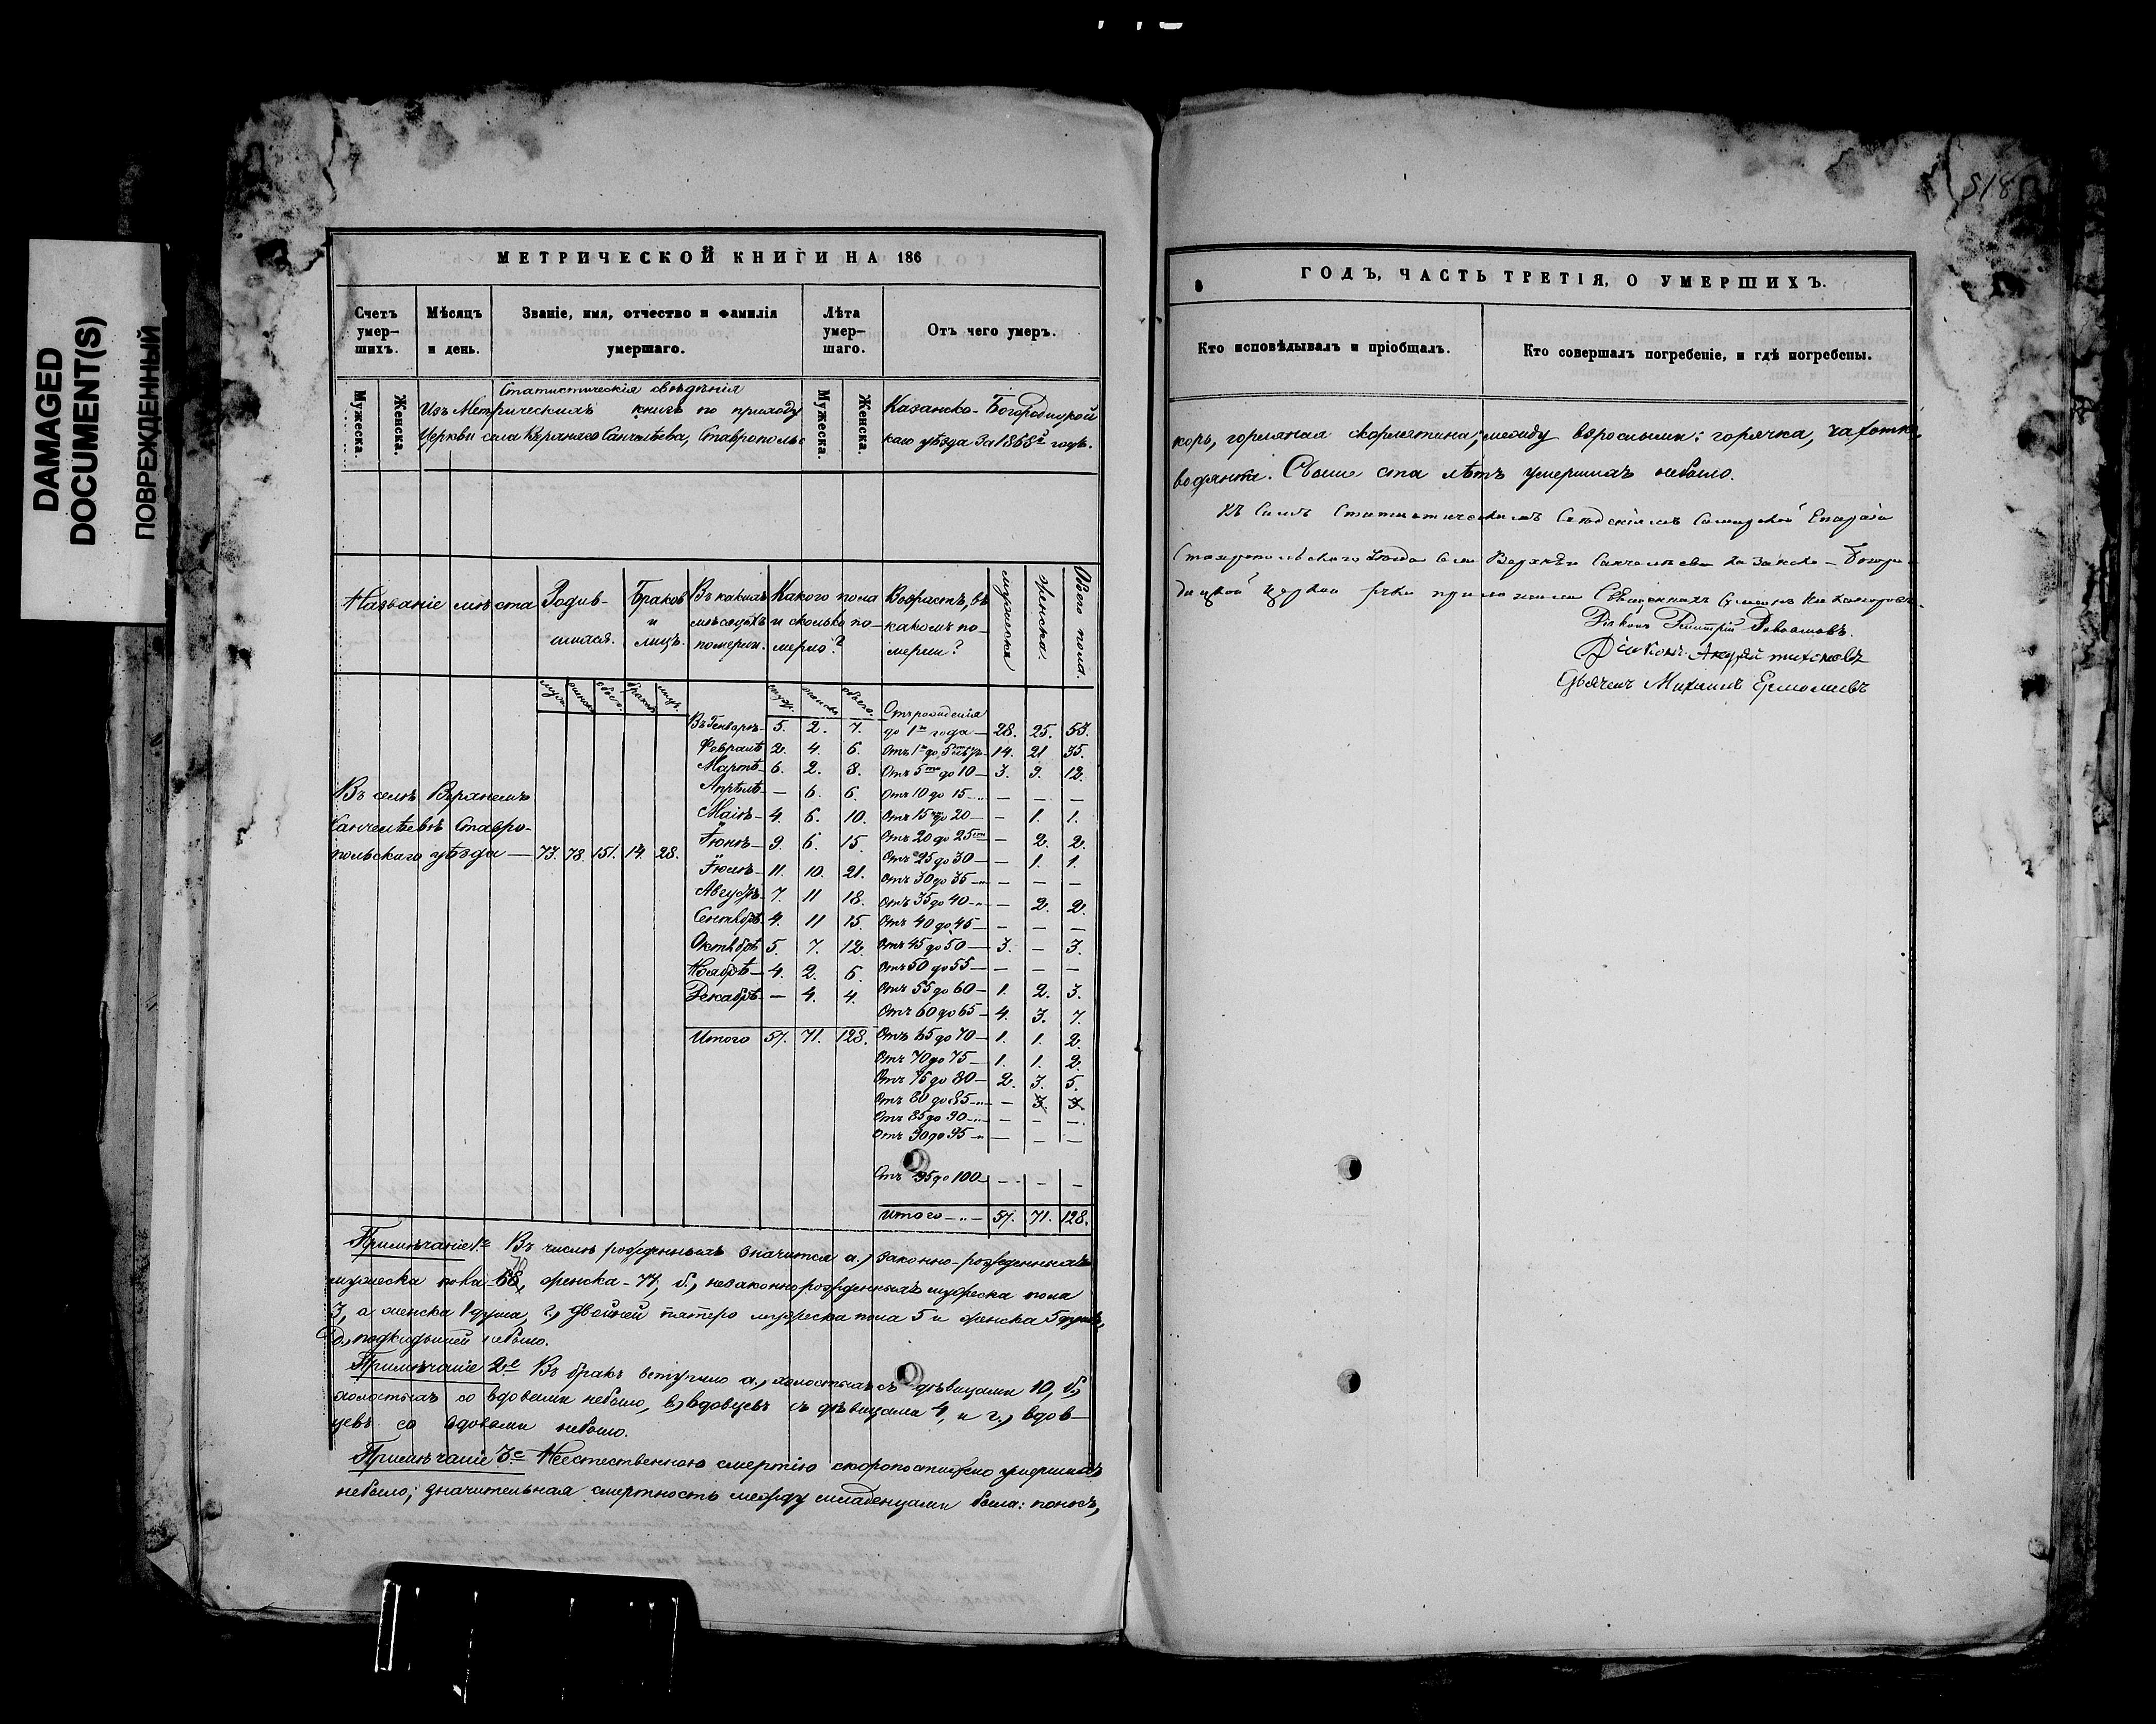 DAMAGED
DOCUMENT(S)
ПОВРЕЖДЕННЫЙ
518
МЕТРИЧЕСКОЙ КНИГИ НА 186
Счетъ умер-шихъ.
Мѣсяцъ и день.
Званіе, имя, отчество и фамилія умершаго.
Лѣта умер-шаго.
Отъ чего умеръ.
Мужеска.
Женска.
Мужеска.
Женска.
Статистическія свѣдѣнія
Изъ Метрическихъ книгъ по приходу Казанско-Богородицкой
Церкви села Верхняго Санчелѣева, Ставрополь скаго уѣзда за 1868й годъ.
Названіе мѣста
Родив-шихся.
Браков и лицъ.
Въ какихъ мѣсяцахъ померли.
Какого пола и сколько по-мерло?
Возрастъ, въ какомъ по-мерли?
мужеска
женска.
Обоего пола.
муж. женска обоего. браков лицъ. муж. женска обоего.
Въ селѣ Верхнемъ
Санчелѣевѣ Ставро-
польскаго уѣзда — 73. 78. 151. 14. 28.
Въ Генварѣ 5. 2. 7.
Февралѣ 2. 4. 6.
Мартѣ 6. 2. 8.
Апрѣлѣ — 6. 6.
Маіѣ 4. 6. 10.
Іюнѣ 9. 6. 15.
Іюлѣ 11. 10. 21.
Августѣ 7. 11 18.
Сентябрѣ 4. 11 15.
Октябрѣ 5. 7. 12.
Ноябрѣ 4. 2. 6.
Декабрѣ — 4. 4.
Итого 57. 71. 128.
Отъ рожденія
до 1го года — 28. 25. 53.
Отъ 1го до 5ти лѣтъ 14. 21 35.
Отъ 5ти до 10 — 3. 9. 12.
Отъ 10 до 15 — — — —
Отъ 15 до 20 — — 1. 1.
Отъ 20 до 25ти — 2. 2.
Отъ 25 до 30 — — 1. 1.
Отъ 30 до 35 — — — —
Отъ 35 до 40 — — 2. 2.
Отъ 40 до 45 — — — —
Отъ 45 до 50 — 3. — 3.
Отъ 50 до 55 — — — —
Отъ 55 до 60 — 1. 2. 3.
Отъ 60 до 65 — 4. 3. 7.
Отъ 65 до 70 — 1. 1. 2.
Отъ 70 до 75 — 1. 1. 2.
Отъ 75 до 80 — 2. 3. 5.
Отъ 80 до 85 — —
Отъ 85 до 90 — — — —
Отъ 90 до 95 — — — —
Отъ 95 до 100 — — — —
Итого — 57. 71. 128.
Примѣчаніе 1е Въ числѣ рожденныхъ значится а., законно-рожденныхъ
мужеска пола женска - 77, б., незаконнорожденныхъ мужеска пола
3, а женска 1 душа, г., двойней пятеро мужеска пола 5 и женска 5 душъ,
д., подкидышей небыло.
Примѣчаніе 2е Въ бракъ вступило а., холостыхъ съ дѣвицами 10, б.,
холостыхъ со вдовами небыло, в., вдовцевъ съ дѣвицами 4, и г., вдов-
цевъ со вдовами небыло.
Примѣчаніе 3е Неестественною смертію скоропостижно умершихъ
небыло; значительная смертность между младенцами была: поносъ,
ГОДЪ, ЧАСТЬ ТРЕТІЯ, О УМЕРШИХЪ.
Кто исповѣдывалъ и пріобщалъ.
Кто совершалъ погребеніе, и гдѣ погребены.
корь, горляная скорлятина; между взрослыми: горячка, чахотка,
водянка. Свыше ста лѣтъ умершихъ небыло.
Къ симъ Статистическимъ Свѣдѣніямъ Самарской Епархіи
Ставропольскаго Уѣзда села Верхняго Санчелѣева Казанско-Богоро-
дицкой Церкви руки приложили Священникъ
Діаконъ Дмитрій
Діаконъ Андрей Тихоновъ
Дьячекъ Михаилъ Ермолаевъ